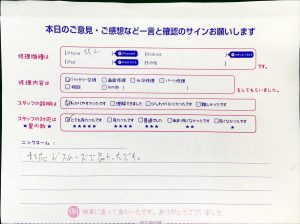 本日のご意見・ご感想など一言と確認のサインお願いします
修理機種は
iPhone SE2
Android
iPad
その他
です。
修理内容は
バッテリー交換 画面修理 水没修理 パーツ修理
相談 その他
をしてもらいました。
スタッフの説明は
わかりやすかったです 理解できました 少しわかりにくかったです 難しかったです
スタッフの対応は
星の数
とても良かったです 良かったです 普通でした あまり良くなかったです 良くなかったです
★★★★★ ★★★★ ★★★ ★★ ★
ニックネーム:
スムーズで良かったです。
無事に直って良かったです。ありがとうございました